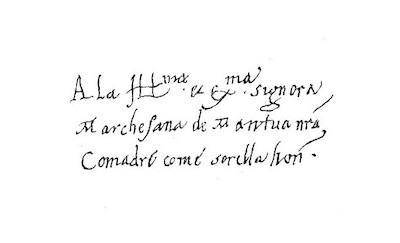 A La Ill.ma et ex.ma signora
Marchesana de Mantua nrã
Comadre come sorella hon.